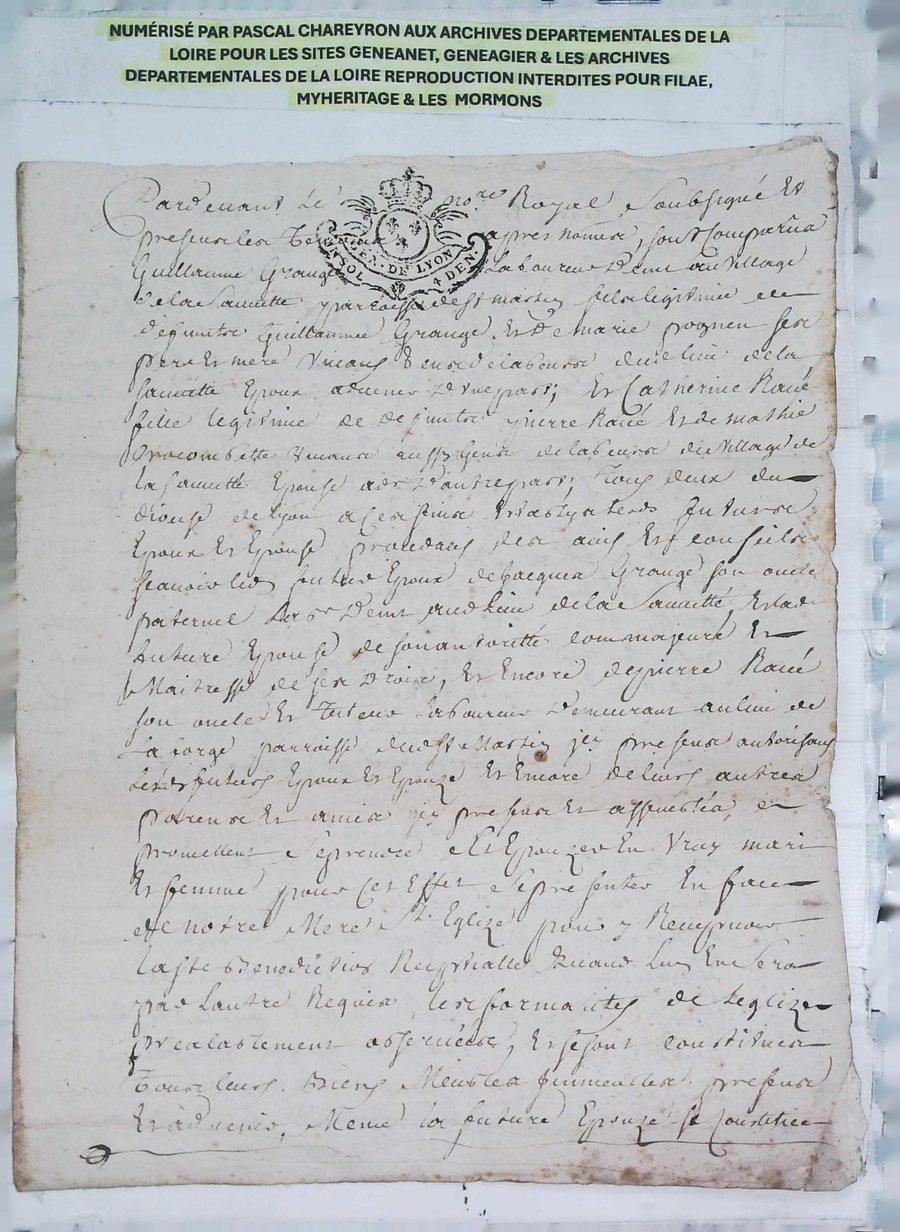 NUMÉRISÉ PAR PASCAL CHAREYRON AUX ARCHIVES DEPARTEMENTALES DE LA
LOIRE POUR LES SITES GENEANET, GENEAGIER & LES ARCHIVES
DEPARTEMENTALES DE LA LOIRE REPRODUCTION INTERDITES POUR FILAE,
MYHERITAGE & LES MORMONS
Pardevant Le no.re Royal Soubsigné Et
presens les apres nomes, sont Comparûs
GEN. DE LYON
UN SOL 4 DEN.
Guillaume Grange Laboureur Demt au Village
de la Sauvette parroisse de st martin fils legitime de
defunts Guillaume Grange Et De marie ses
pere Et mere Vivans dudt lieu de la
Sauvette Epoux advenir D'une part; Et Catherine Raué
fille legitime de defunts pierre Raué Et de mathie
Vivans aussy gens de labeurs du Village de
la Sauvette Epouse adv D'autre part, Tous deux du
diocese de Lyon a ces fins futurs
Epoux Et Epouse procedans des avis Et conseils
Scavoir led futur Epoux de Jacques Grange son oncle
paternel Lab.r Demt audt Lieu de la Sauvette, Et lad
future Epouse de son autoritté comme majeure Et
Maitresse de ses Droits, Et Encore de pierre Raué
son oncle Et Tuteur Laboureur Demeurant au lieu de
La forge parroisse dudt st Martin jcy presens autorisans
Lesds futurs Epoux Et Epouze Et Encore de leurs autres
parens Et amis jcy presens Et assemblés, et
promettent Se prendre Et Epouzer En Vray mari
Et femme pour Cet Effet Se presenter En face
de notre Mere Ste Eglize pour y Recepvoir
La ste Benediction Nuptialle quand Lun En Sera
par Lautre Requis, les formalités de Leglize
prealablement observées, Et se sont constitués
Tous leurs Biens Meubles jmmeubles presens
Et advenir, Meme la future Epouze se Constitue